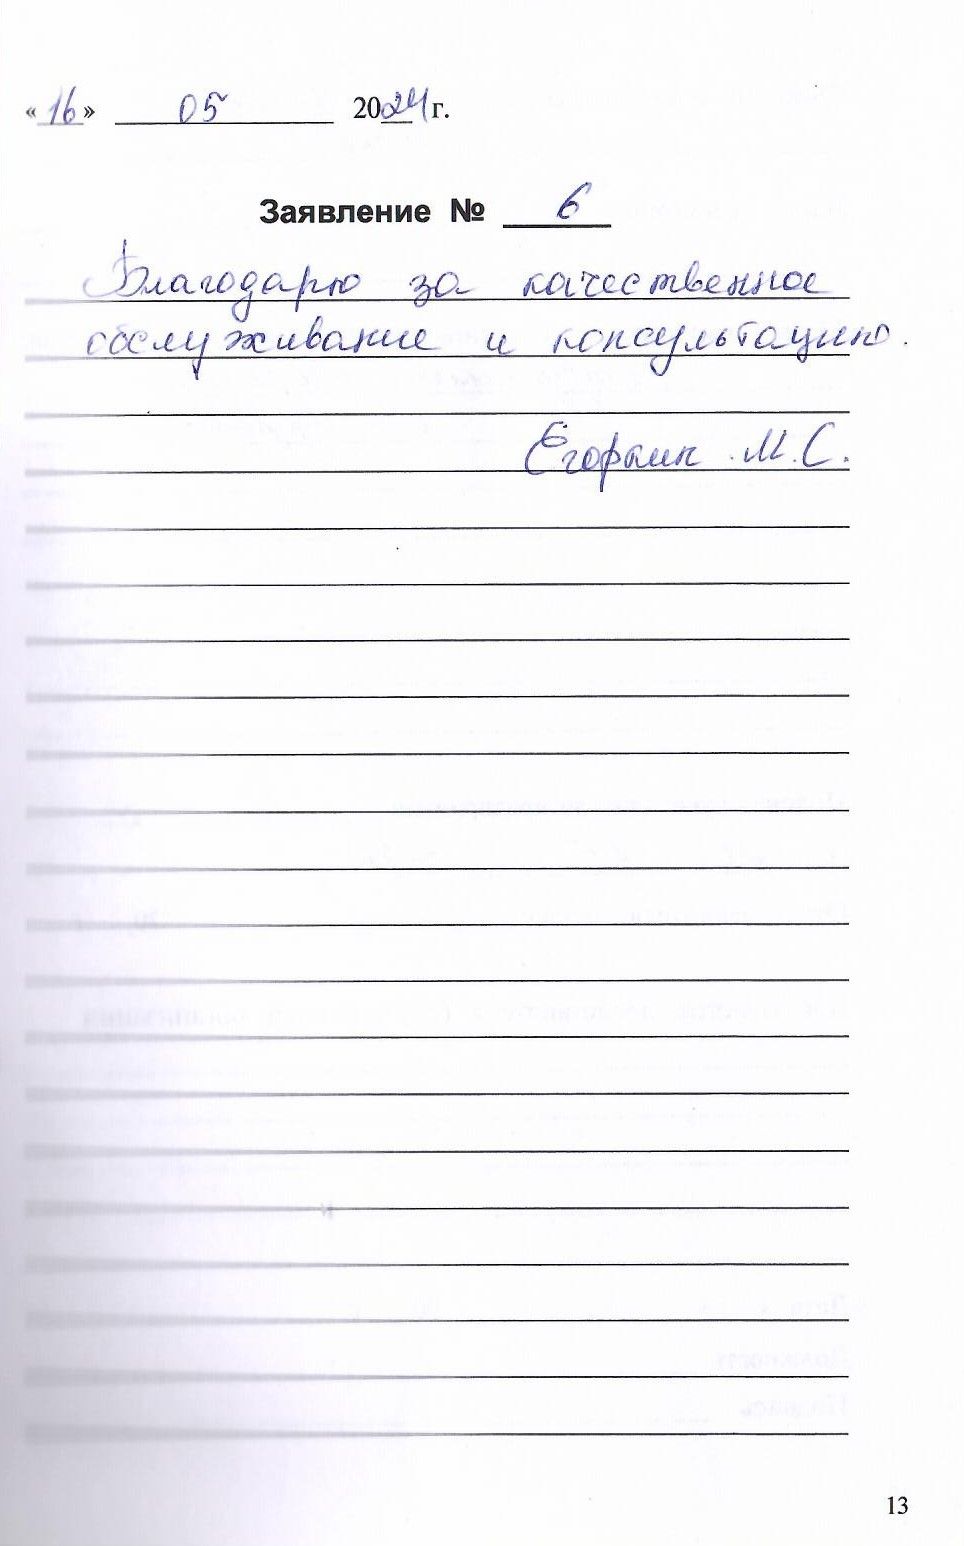 «16» 05 2024 г.
Заявление № 6
Благодарю за качественное
обслуживание и консультацию.
Егоркин М.С.
13